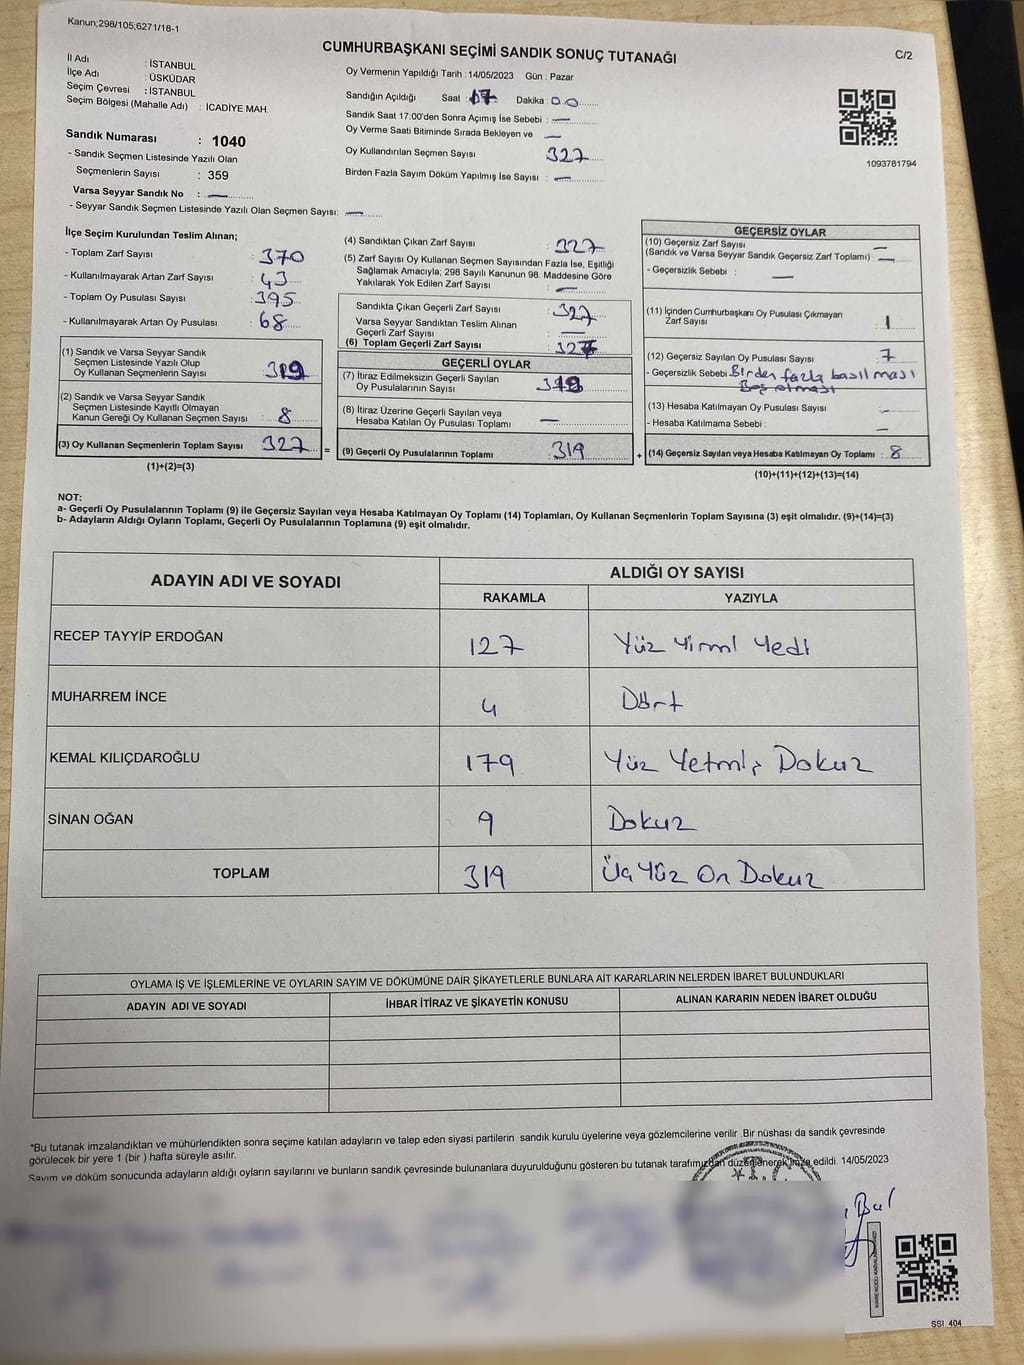 Kanun;298/105;6271/18-1
CUMHURBAŞKANI SEÇİMİ SANDIK SONUÇ TUTANAĞI
C/2
İl Adı : İSTANBUL
İlçe Adı : ÜSKÜDAR
Seçim Çevresi : İSTANBUL
Seçim Bölgesi (Mahalle Adı) : İCADİYE MAH.
Sandık Numarası : 1040
- Sandık Seçmen Listesinde Yazılı Olan
Seçmenlerin Sayısı : 359
Varsa Seyyar Sandık No : —
- Seyyar Sandık Seçmen Listesinde Yazılı Olan Seçmen Sayısı: —
Oy Vermenin Yapıldığı Tarih : 14/05/2023 Gün : Pazar
Sandığın Açıldığı Saat : 17 Dakika : 00
Sandık Saat 17:00'den Sonra Açımış İse Sebebi : —
Oy Verme Saati Bitiminde Sırada Bekleyen ve —
Oy Kullandırılan Seçmen Sayısı 327
Birden Fazla Sayım Döküm Yapılmış İse Sayısı : —
1093781794
İlçe Seçim Kurulundan Teslim Alınan;
- Toplam Zarf Sayısı : 370
- Kullanılmayarak Artan Zarf Sayısı : 43
- Toplam Oy Pusulası Sayısı : 395
- Kullanılmayarak Artan Oy Pusulası : 68
(1) Sandık ve Varsa Seyyar Sandık
Seçmen Listesinde Yazılı Olup
Oy Kullanan Seçmenlerin Sayısı : 319
(2) Sandık ve Varsa Seyyar Sandık
Seçmen Listesinde Kayıtlı Olmayan
Kanun Gereği Oy Kullanan Seçmen Sayısı : 8
(3) Oy Kullanan Seçmenlerin Toplam Sayısı : 327
(1)+(2)=(3)
(4) Sandıktan Çıkan Zarf Sayısı : 327
(5) Zarf Sayısı Oy Kullanan Seçmen Sayısından Fazla İse, Eşitliği
Sağlamak Amacıyla; 298 Sayılı Kanunun 98. Maddesine Göre
Yakılarak Yok Edilen Zarf Sayısı : —
Sandıkta Çıkan Geçerli Zarf Sayısı : 327
Varsa Seyyar Sandıktan Teslim Alınan
Geçerli Zarf Sayısı : —
(6) Toplam Geçerli Zarf Sayısı 327
GEÇERLİ OYLAR
(7) İtiraz Edilmeksizin Geçerli Sayılan
Oy Pusulalarının Sayısı :
(8) İtiraz Üzerine Geçerli Sayılan veya
Hesaba Katılan Oy Pusulası Toplamı : —
(9) Geçerli Oy Pusulalarının Toplamı : 319
=
+
GEÇERSİZ OYLAR
(10) Geçersiz Zarf Sayısı —
(Sandık ve Varsa Seyyar Sandık Geçersiz Zarf Toplamı) : —
- Geçersizlik Sebebi : —
(11) İçinden Cumhurbaşkanı Oy Pusulası Çıkmayan
Zarf Sayısı : 1
(12) Geçersiz Sayılan Oy Pusulası Sayısı : 7
- Geçersizlik Sebebi Birden fazla basılması
Boş olması
(13) Hesaba Katılmayan Oy Pusulası Sayısı : —
- Hesaba Katılmama Sebebi : —
(14) Geçersiz Sayılan veya Hesaba Katılmayan Oy Toplamı : 8
(10)+(11)+(12)+(13)=(14)
NOT:
a- Geçerli Oy Pusulalarının Toplamı (9) ile Geçersiz Sayılan veya Hesaba Katılmayan Oy Toplamı (14) Toplamları, Oy Kullanan Seçmenlerin Toplam Sayısına (3) eşit olmalıdır. (9)+(14)=(3)
b- Adayların Aldığı Oyların Toplamı, Geçerli Oy Pusulalarının Toplamına (9) eşit olmalıdır.
ADAYIN ADI VE SOYADI ALDIĞI OY SAYISI
RAKAMLA YAZIYLA
RECEP TAYYİP ERDOĞAN 127 Yüz Yirmi Yedi
MUHARREM İNCE 4 Dört
KEMAL KILIÇDAROĞLU 179 Yüz Yetmiş Dokuz
SİNAN OĞAN 9 Dokuz
TOPLAM 319 Üç Yüz On Dokuz
OYLAMA İŞ VE İŞLEMLERİNE VE OYLARIN SAYIM VE DÖKÜMÜNE DAİR ŞİKAYETLERLE BUNLARA AİT KARARLARIN NELERDEN İBARET BULUNDUKLARI
ADAYIN ADI VE SOYADI İHBAR İTİRAZ VE ŞİKAYETİN KONUSU ALINAN KARARIN NEDEN İBARET OLDUĞU
*Bu tutanak imzalandıktan ve mühürlendikten sonra seçime katılan adayların ve talep eden siyasi partilerin sandık kurulu üyelerine veya gözlemcilerine verilir .Bir nüshası da sandık çevresinde
görülecek bir yere 1 (bir ) hafta süreyle asılır.
Sayım ve döküm sonucunda adayların aldığı oyların sayılarını ve bunların sandık çevresinde bulunanlara duyurulduğunu gösteren bu tutanak tarafımızdan düzenlenerek imza edildi. 14/05/2023
SSI 404